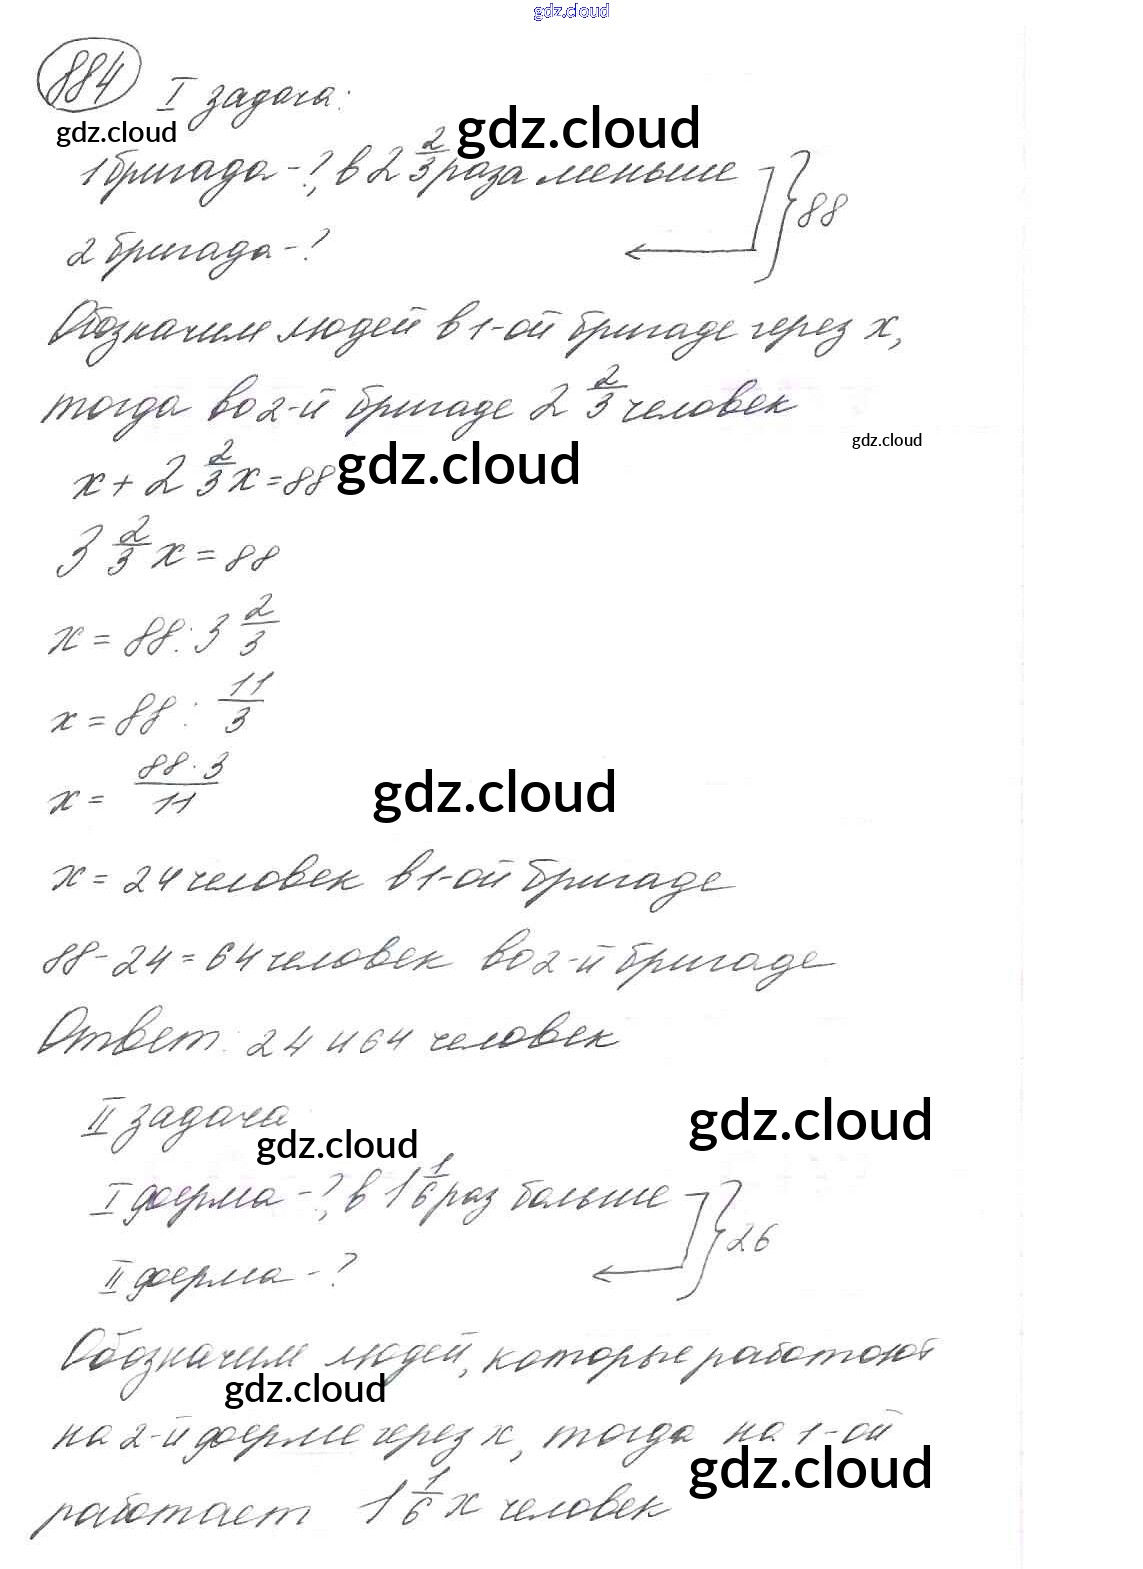 gdz.cloud
884 I задача:
gdz.cloud gdz.cloud
1 бригада - ?, в 2 2/3 раза меньше
88
2 бригада - ?
Обозначим людей в 1-ой бригаде через x,
тогда во 2-й бригаде 2 2/3 человек
gdz.cloud
x + 2 2/3 x = 88 gdz.cloud
3 2/3 x = 88
x = 88 : 3 2/3
x = 88 : 11/3
x = 88 · 3/11
gdz.cloud
x = 24 человек в 1-ой бригаде
88 - 24 = 64 человек во 2-й бригаде
Ответ: 24 и 64 человек
II задача gdz.cloud
gdz.cloud
I ферма - ?, в 1 1/6 раз больше
26
II ферма - ?
Обозначим людей, которые работают
gdz.cloud
на 2-й ферме через x, тогда на 1-ой
gdz.cloud
работает 1 1/6 x человек